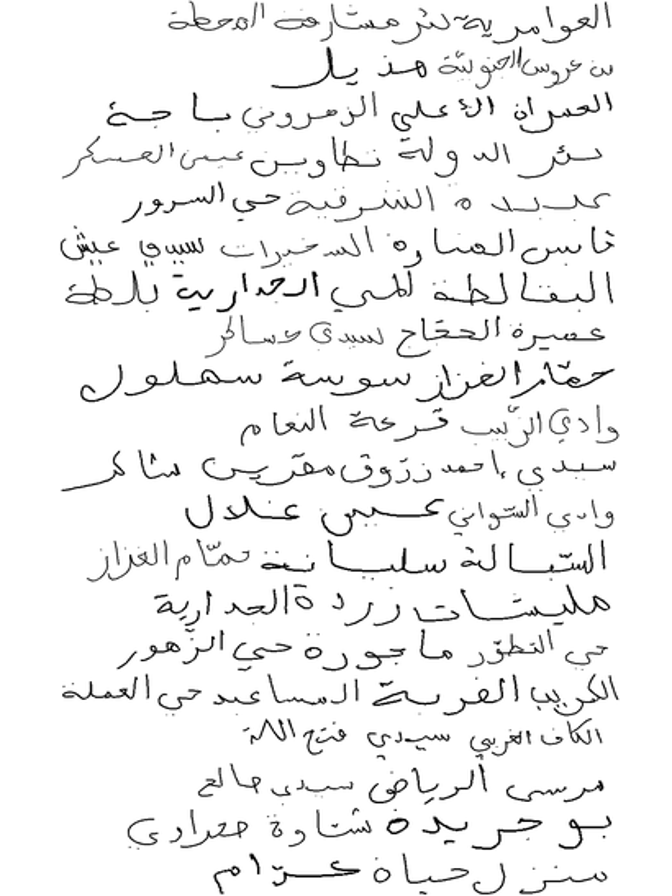 العوامرية بئر مشارفة المحطة
بن عروس الجنوبية هذيل
العمران الأعلى الزهروني باجة
بئر الدولة تطاوين عين العسكر
جديدة الشرفية حي السرور
قابس المنارة السخيرات سيدي عيش
البقالطة لمسي الجدارية بلطة
عميرة الحجاج سيدي عساكر
حمّام الغزاز سوسة سهلول
وادي الزيب قرعة النعام
سيدي أحمد زرّوق مقرين شاكر
وادي السّواني عين غلال
السّبالة سليانة حمّام الغزاز
مليشات زردة الجدارية
حي التطوّر ماجورة حي الزّهور
الكريب الغريبة المساعيد حي العملة
الكاف الغربي سيدي فتح الله
مرسى الرياض سيدي صالح
بوجريدة شتاوة حفرادي
منزل حياة كرّام